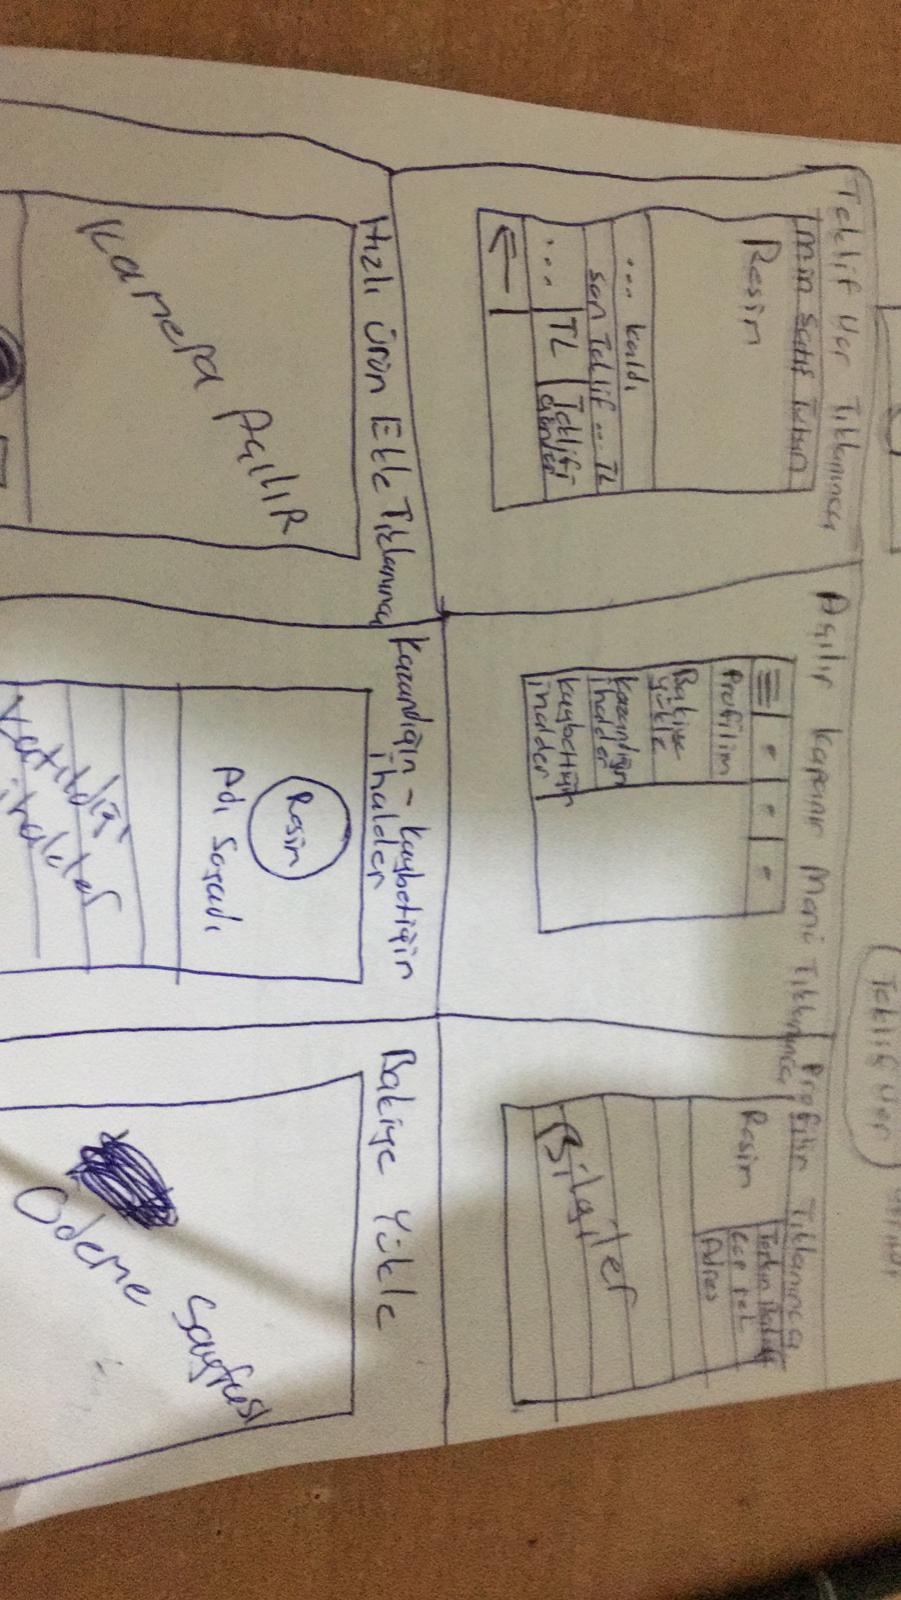 Teklif Ver
Teklif Ver Tıklanınca
min satış Tutarı
Resim
... kaldı
son Teklif ... TL
... TL Teklifi
Gönder
Açılır Kapanır Menü Tıklanınca
Profilim
Bakiye
yükle
kazandığın
ihaleler
kaybettiğin
ihaleler
Profilim Tıklanınca
Resim
Cep tel
Adres
Bilgiler
Hızlı Ürün Ekle Tıklanınca
Kamera Açılır
Kazandığın - Kaybetiğin
ihaleler
Resim
Adı Soyadı
Katıldığı
ihaleler
Bakiye Yükle
Ödeme Sayfası